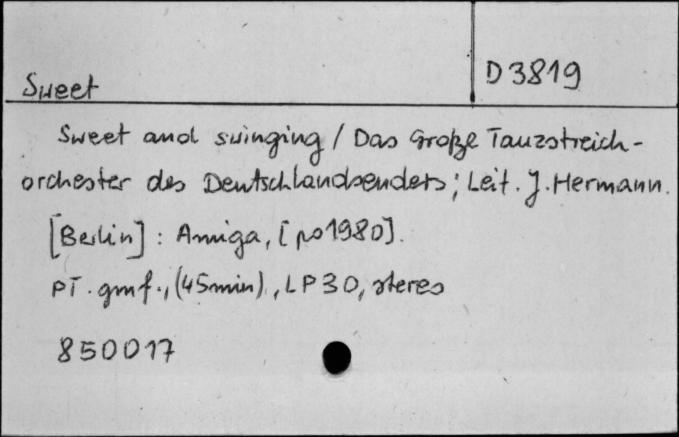 Sweet
D 3819
Sweet and swinging / Das Große Tanzstreich-
orchester des Deutschlandsenders; Leit. J. Hermann.
[Berlin] : Amiga, [po 1980].
PŤ. gmf., (45min)., LP 30, stereo
850017